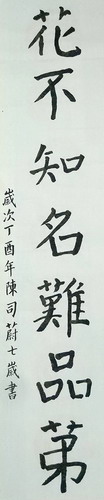 花不知名難品苐
歲次丁酉年陳司蔚七歲書